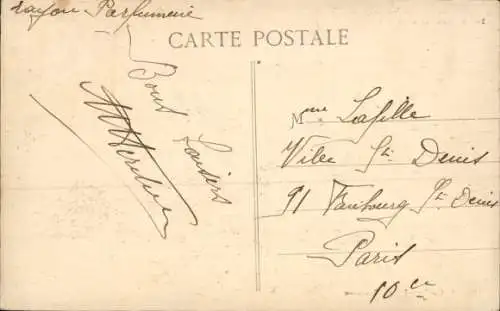 rayon Parfumerie
CARTE POSTALE
Bons
Mme Lafille
Ville St Denis
91 Faubourg St Denis
Paris
10e